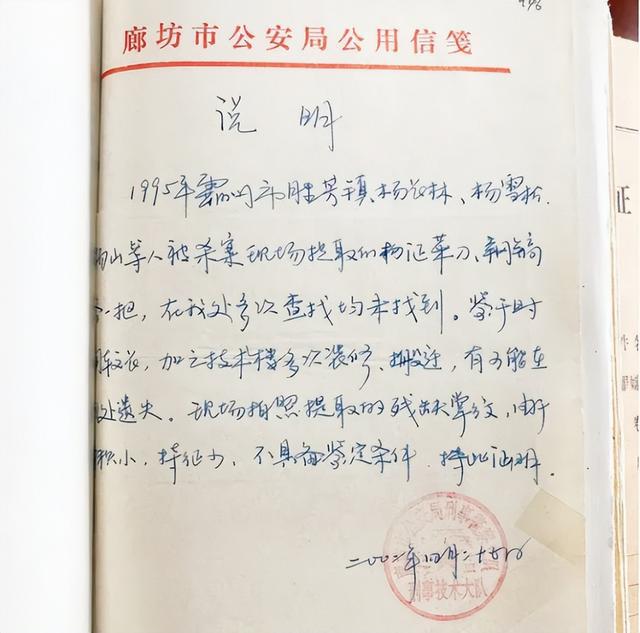 廊坊市公安局公用信笺
说 明
1995年霸州市胜芳镇、杨长林、杨雪松
山等人被杀案现场提取的物证菜刀、钢镐
一把，在我处多次查找均未找到。鉴于时
较长，加之技术楼多次装修、搬迁，有可能在
处遗失。现场拍照提取的残缺掌纹，由于
积小，特征少，不具备鉴定条件 特此证明.
二00二年四月二十七日
公安局刑事警察
刑事技术大队
证
卷